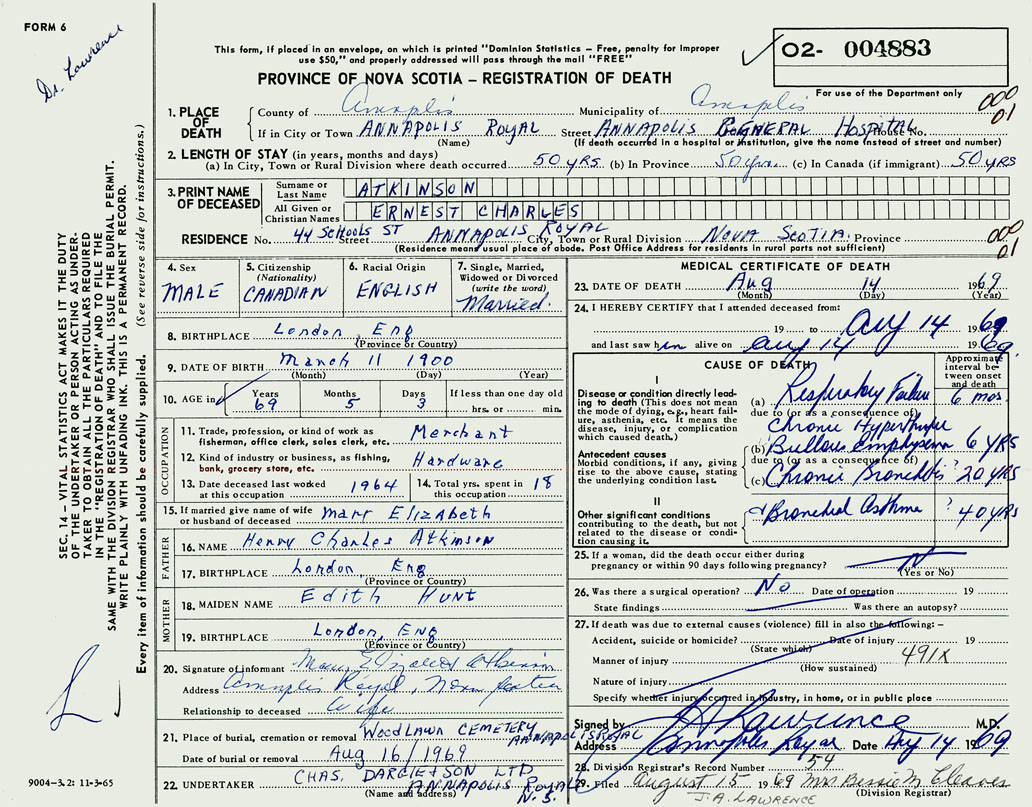 FORM 6
Dr. Lawrence
This form, if placed in an envelope, on which is printed "Dominion Statistics – Free, penalty for improper
use $50," and properly addressed will pass through the mail "FREE"
PROVINCE OF NOVA SCOTIA – REGISTRATION OF DEATH
O2- 004883
For use of the Department only
000
01
1. PLACE OF DEATH
County of Annapolis Municipality of Annapolis
If in City or Town ANNAPOLIS ROYAL Street ANNAPOLIS GENERAL HOSPITAL House No.
(Name) (If death occurred in a hospital or institution, give the name instead of street and number)
2. LENGTH OF STAY (in years, months and days)
(a) In City, Town or Rural Division where death occurred 50 YRS. (b) In Province 50 yrs. (c) In Canada (if immigrant) 50 YRS
3. PRINT NAME OF DECEASED
Surname or Last Name ATKINSON
All Given or Christian Names ERNEST CHARLES
RESIDENCE No. 44 Schools ST Street ANNAPOLIS ROYAL City, Town or Rural Division NOVA SCOTIA Province
(Residence means usual place of abode. Post Office Address for residents in rural parts not sufficient)
000
01
4. Sex
MALE
5. Citizenship (Nationality)
CANADIAN
6. Racial Origin
ENGLISH
7. Single, Married, Widowed or Divorced (write the word)
Married.
8. BIRTHPLACE London, Eng
(Province or Country)
9. DATE OF BIRTH March 11 1900
(Month) (Day) (Year)
10. AGE in
Years Months Days If less than one day old
69 5 3 hrs. or min.
OCCUPATION
11. Trade, profession, or kind of work as
fisherman, office clerk, sales clerk, etc. Merchant
12. Kind of industry or business, as fishing,
bank, grocery store, etc. Hardware
13. Date deceased last worked
at this occupation 1964
14. Total yrs. spent in
this occupation 18
15. If married give name of wife
or husband of deceased Mary Elizabeth
FATHER
16. NAME Henry Charles Atkinson
17. BIRTHPLACE London, Eng
(Province or Country)
MOTHER
18. MAIDEN NAME Edith HUNT
19. BIRTHPLACE London, ENG
(Province or Country)
20. Signature of informant Mary Elizabeth Atkinson
Address Annapolis Royal, Nova Scotia
Relationship to deceased Wife
21. Place of burial, cremation or removal WOODLAWN CEMETERY
ANNAPOLIS ROYAL
Date of burial or removal Aug 16/1969
22. UNDERTAKER CHAS. DARGIE & SON LTD
(Name and address) ANNAPOLIS ROYAL
N.S.
MEDICAL CERTIFICATE OF DEATH
23. DATE OF DEATH Aug 14 1969
(Month) (Day) (Year)
24. I HEREBY CERTIFY that I attended deceased from:
19 to Aug 14 1969
and last saw him alive on Aug 14 1969
CAUSE OF DEATH
Approximate interval between onset and death
I
Disease or condition directly leading to death (This does not mean the mode of dying, e.g., heart failure, asthenia, etc. It means the disease, injury, or complication which caused death.)
(a) Respiratory Failure 6 mos.
due to (or as a consequence of)
Chronic
Antecedent causes
Morbid conditions, if any, giving rise to the above cause, stating the underlying condition last.
(b) Bullous emphysema 6 YRS
due to (or as a consequence of)
(c) Chronic Bronchitis ? 20 YRS
II
Other significant conditions
contributing to the death, but not related to the disease or condition causing it.
Bronchial Asthma ? 40 yrs
25. If a woman, did the death occur either during
pregnancy or within 90 days following pregnancy? N
(Yes or No)
26. Was there a surgical operation? No Date of operation 19
State findings Was there an autopsy?
27. If death was due to external causes (violence) fill in also the following: –
Accident, suicide or homicide? Date of injury 19
(State which)
Manner of injury 491X
(How sustained)
Nature of injury
Specify whether injury occurred in industry, in home, or in public place
Signed by Lawrence M.D.
Address Annapolis Royal Date Aug 14 1969
28. Division Registrar's Record Number 54
29. Filed August 15 1969 Mrs Bessie M. Cleaves
(Division Registrar)
J.A. LAWRENCE
SEC. 14 – VITAL STATISTICS ACT MAKES IT THE DUTY
OF THE UNDERTAKER OR PERSON ACTING AS UNDERTAKER TO OBTAIN ALL THE PARTICULARS REQUIRED
IN THE "REGISTRATION OF DEATH" AND TO FILE THE
SAME WITH THE DIVISION REGISTRAR WHO SHALL ISSUE THE BURIAL PERMIT.
WRITE PLAINLY WITH UNFADING INK. THIS IS A PERMANENT RECORD.
Every item of information should be carefully supplied. (See reverse side for instructions.)
9004-3.2: 11-3-65